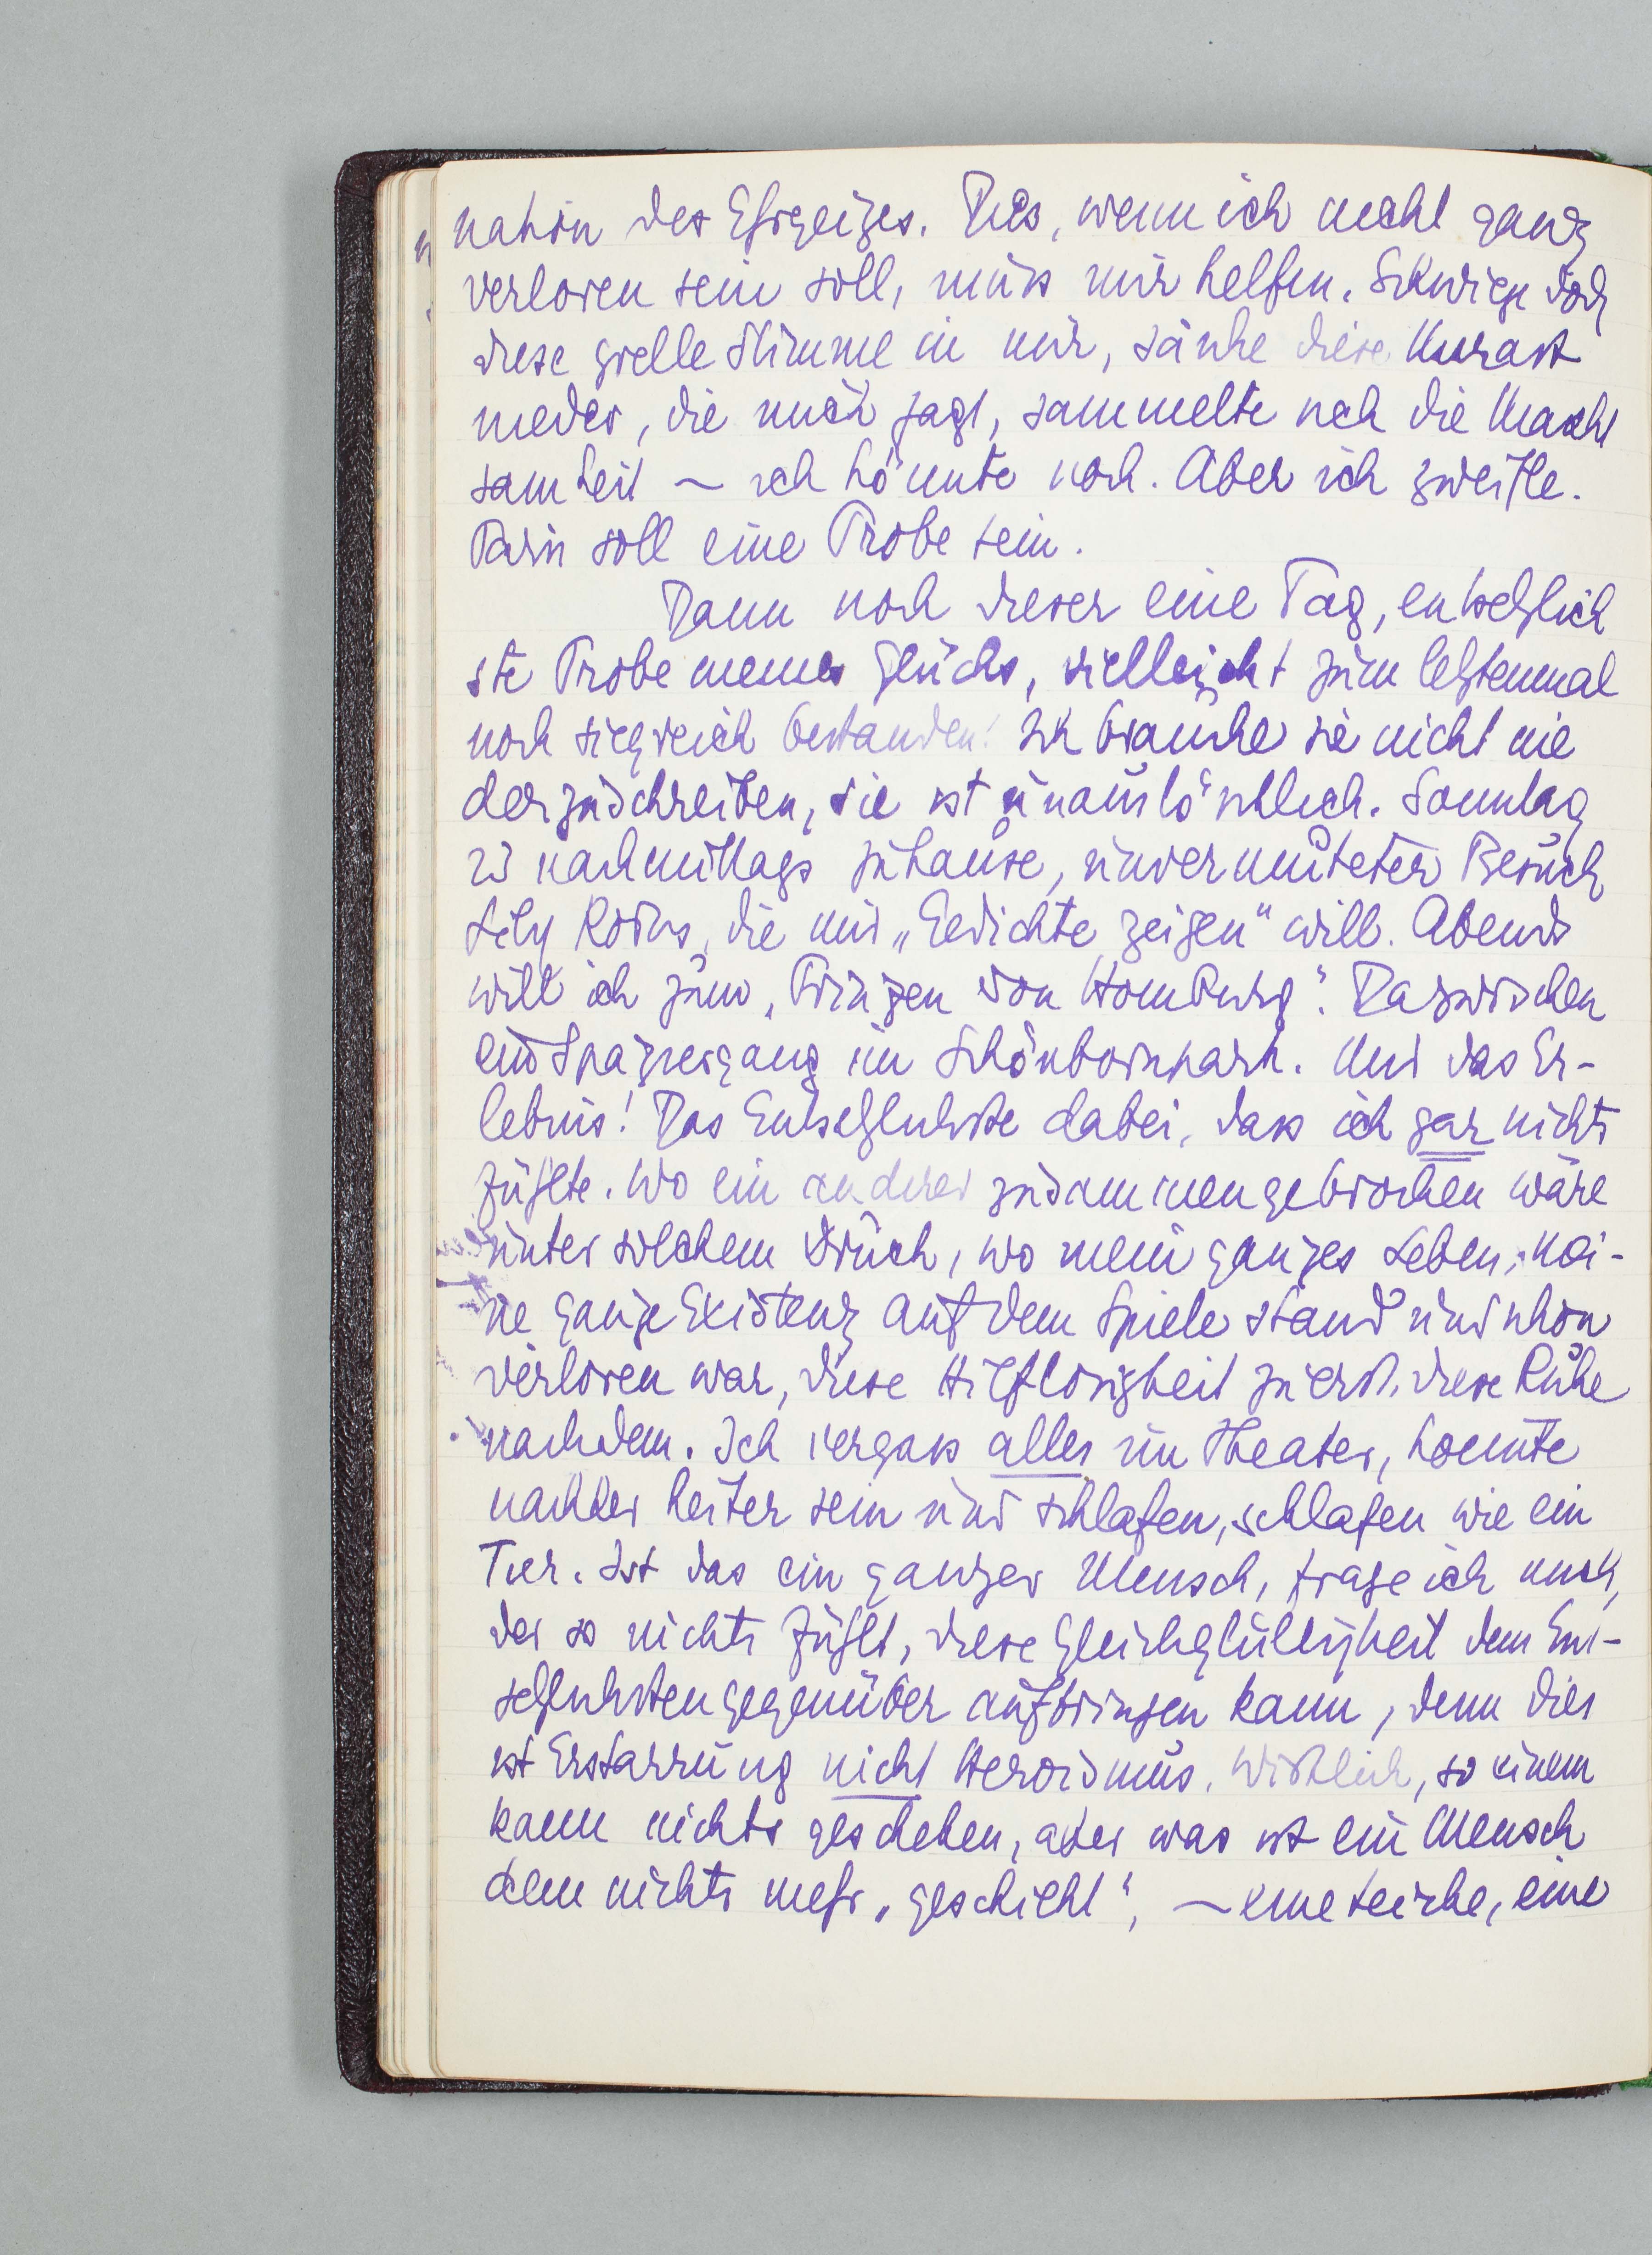 nation des Ehrgeizes. Dies, wenn ich nicht ganz
verloren sein soll, muss mir helfen. Schwiege doch
diese grelle Stimme in mir, sänke diese Unrast
nieder, die mich jagt, sammelte sich die Wach
samkeit – ich könnte noch. Aber ich zweifle.
Paris soll eine Probe sein.
Dann noch dieser eine Tag, entsetzlich
ste Probe meines Glücks, vielleicht zum letztenmal
noch siegreich bestanden! Ich brauche sie nicht nie
derzuschreiben, sie ist unauslöschlich. Sonntag
nachmittags zuhause, unvermuteter Besuch
Lily, die mir „Gedichte zeigen“ will. Abends
will ich zum „Prinzen von Homburg“. Dazwischen
ein Spaziergang im Schönbornpark. Und das Er-
lebnis! Das Entsetzlichste dabei, dass ich gar nichts
fühlte. Wo ein anderer zusammengebrochen wäre
unter solchem Druck, wo mein ganzes Leben, mei-
ne ganze Existenz auf dem Spiele stand und schon
verloren war, diese Hilflosigkeit zuerst, diese Ruhe
nachdem. Ich vergass alles im Theater, konnte
nachher heiter sein und schlafen, schlafen wie ein
Tier. Ist das ein ganzer Mensch, frage ich mich,
der so nichts fühlt, diese Gleichgültigkeit dem Ent-
setzlichsten gegenüber aufbringen kann, denn dies
ist Erstarrung nicht Heroismus. Wirklich, so einem
kann nichts geschehen, aber was ist ein Mensch
dem nichts mehr „geschieht“, – eine Leiche, eine